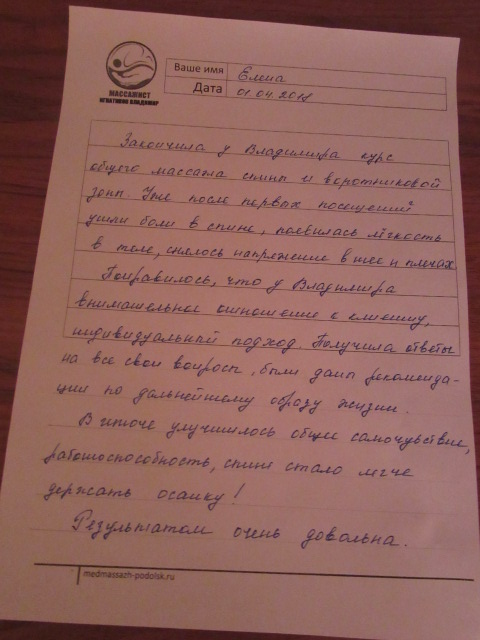 МАССАЖИСТ
ИГНАТОВИЧ ВЛАДИМИР
Ваше имя Елена
Дата 01.04.2018
Закончила у Владимира курс
общего массажа спины и воротниковой
зоны. Уже после первых посещений
ушли боли в спине, появилась лёгкость
в теле, снялось напряжение в шее и плечах
Понравилось, что у Владимира
внимательное отношение к клиенту,
индивидуальный подход. Получила ответы
на все свои вопросы, были даны рекоменда-
ции по дальнейшему образу жизни.
В итоге улучшилось общее самочувствие,
работоспособность, спине стало легче
держать осанку!
Результатом очень довольна.
medmassazh-podolsk.ru